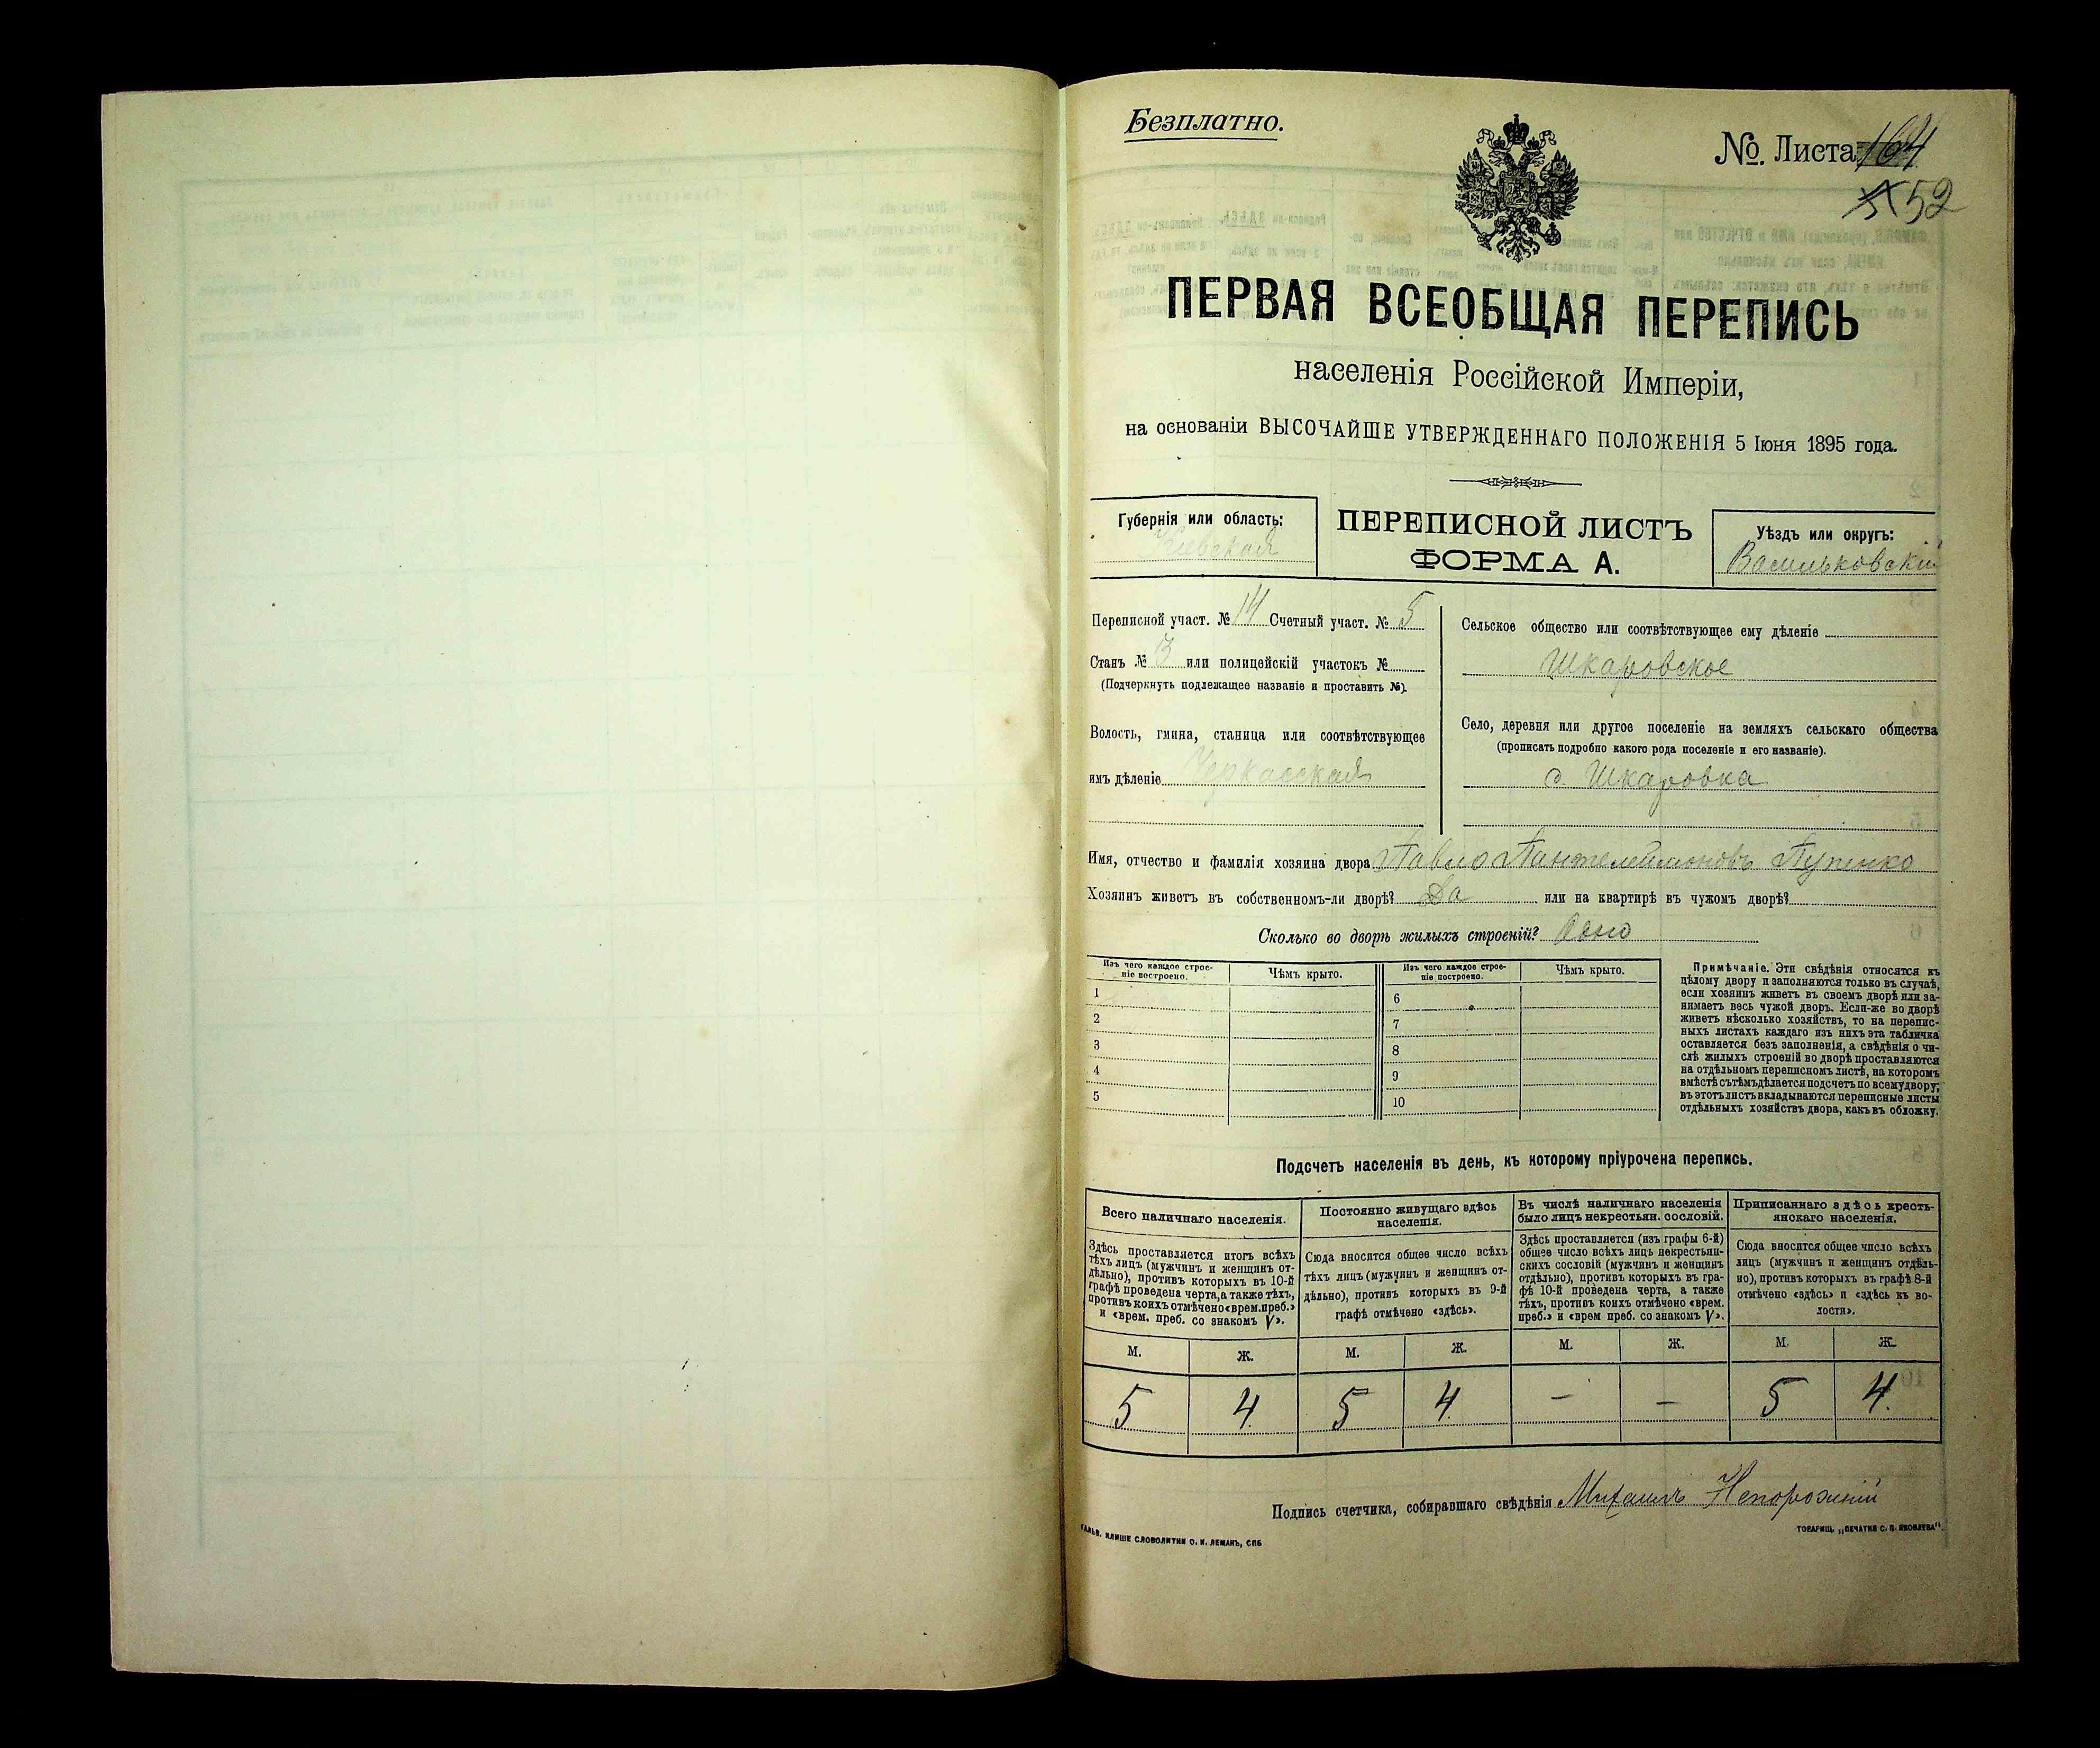 Безплатно.
№. Листа 164
52
ПЕРВАЯ ВСЕОБЩАЯ ПЕРЕПИСЬ
населенія Россійской Имперіи,
на основаніи ВЫСОЧАЙШЕ УТВЕРЖДЕННАГО ПОЛОЖЕНІЯ 5 Іюня 1895 года.
Губернія или область:
Кіевская
ПЕРЕПИСНОЙ ЛИСТЪ
ФОРМА А.
Уѣздъ или округъ:
Васильковскій
Переписной участ. № 14 Счетный участ. № 5
Станъ № 3 или полицейскій участокъ №
(Подчеркнуть подлежащее названіе и проставить №).
Волость, гмина, станица или соотвѣтствующее
имъ дѣленіе Черкасская
Сельское общество или соотвѣтствующее ему дѣленіе
Шкаровское
Село, деревня или другое поселеніе на земляхъ сельскаго общества
(прописать подробно какого рода поселеніе и его названіе).
с. Шкаровка
Имя, отчество и фамилія хозяина двора Павло Пантелеймоновъ
Хозяинъ живетъ въ собственномъ-ли дворѣ? Да или на квартирѣ въ чужомъ дворѣ?
Сколько во дворѣ жилыхъ строеній? Одно
Изъ чего каждое строе-
ніе построено.
Чѣмъ крыто.
1
2
3
4
5
Изъ чего каждое строе-
ніе построено.
Чѣмъ крыто.
6
7
8
9
10
Примѣчаніе. Эти свѣдѣнія относятся къ
цѣлому двору и заполняются только въ случаѣ,
если хозяинъ живетъ въ своемъ дворѣ или за-
нимаетъ весь чужой дворъ. Если-же во дворѣ
живетъ нѣсколько хозяйствъ, то на перепис-
ныхъ листахъ каждаго изъ нихъ эта табличка
оставляется безъ заполненія, а свѣдѣнія о чи-
слѣ жилыхъ строеній во дворѣ проставляются
на отдѣльномъ переписномъ листѣ, на которомъ
вмѣстѣ съ тѣмъ дѣлается подсчетъ по всему двору;
въ этотъ листъ вкладываются переписные листы
отдѣльныхъ хозяйствъ двора, какъ въ обложку.
Подсчетъ населенія въ день, къ которому пріурочена перепись.
Всего наличнаго населенія.
Здѣсь проставляется итогъ всѣхъ
тѣхъ лицъ (мужчинъ и женщинъ от-
дѣльно), противъ которыхъ въ 10-й
графѣ проведена черта, а также тѣхъ,
противъ коихъ отмѣчено «врем. преб.»
и «врем. преб. со знакомъ V».
М.
Ж.
5
4
Постоянно живущаго здѣсь
населенія.
Сюда вносится общее число всѣхъ
тѣхъ лицъ (мужчинъ и женщинъ от-
дѣльно), противъ которыхъ въ 9-й
графѣ отмѣчено «здѣсь».
М.
Ж.
5
4
Въ числѣ наличнаго населенія
было лицъ некрестьян. сословій.
Здѣсь проставляется (изъ графы 6-й)
общее число всѣхъ лицъ некрестьян-
скихъ сословій (мужчинъ и женщинъ
отдѣльно), противъ которыхъ въ гра-
фѣ 10-й проведена черта, а также
тѣхъ, противъ коихъ отмѣчено «врем.
преб.» и «врем преб. со знакомъ V».
М.
Ж.
–
–
Приписаннаго здѣсь кресть-
янскаго населенія.
Сюда вносится общее число всѣхъ
лицъ (мужчинъ и женщинъ отдѣль-
но), противъ которыхъ въ графѣ 8-й
отмѣчено «здѣсь» и «здѣсь къ во-
лости».
М.
Ж.
5
4
Подпись счетчика, собиравшаго свѣдѣнія Михаилъ Непорожній
ГАЛЬВ. КЛИШЕ СЛОВОЛИТНИ О. И. ЛЕМАНЪ, СПБ
ТОВАРИЩ. „ПЕЧАТНЯ С. П. ЯКОВЛЕВА".